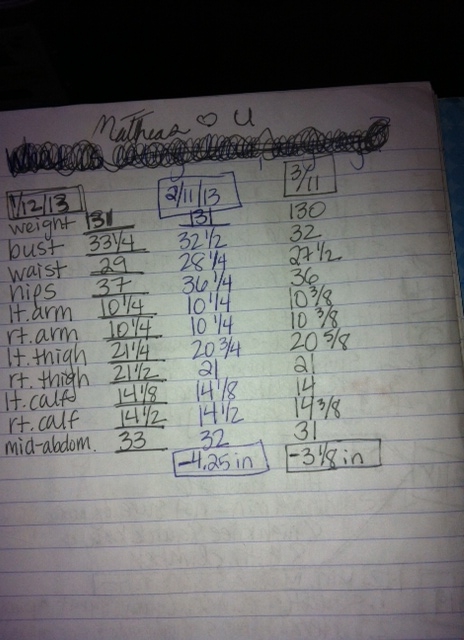 Mathias ♡ U
1/12/13 2/11/13 3/11
weight 131 131 130
bust 33 1/4 32 1/2 32
waist 29 28 1/4 27 1/2
hips 37 36 1/4 36
lt. arm 10 1/4 10 1/4 10 3/8
rt. arm 10 1/4 10 1/4 10 3/8
lt. thigh 21 1/4 20 3/4 20 5/8
rt. thigh 21 1/2 21 21
lt. calf 14 1/8 14 1/8 14
rt. calf 14 1/2 14 1/2 14 3/8
mid-abdom. 33 32 31
-4.25 in -3 1/8 in